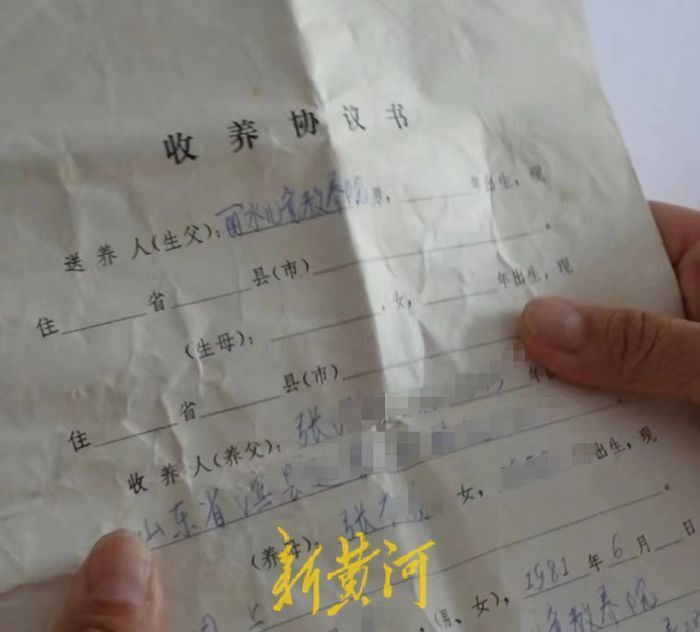 收养协议书
送养人(生父):丽水儿童教养院男,______年出生,现
住______省______县(市)______。
(生母):______,女,______年出生,现
住______省______县(市)______。
收养人(养父):张 年
山东省滨县 。
(养母):张 女, 出生,现
新黄河
(男、女),1981年6月 日
童教养院